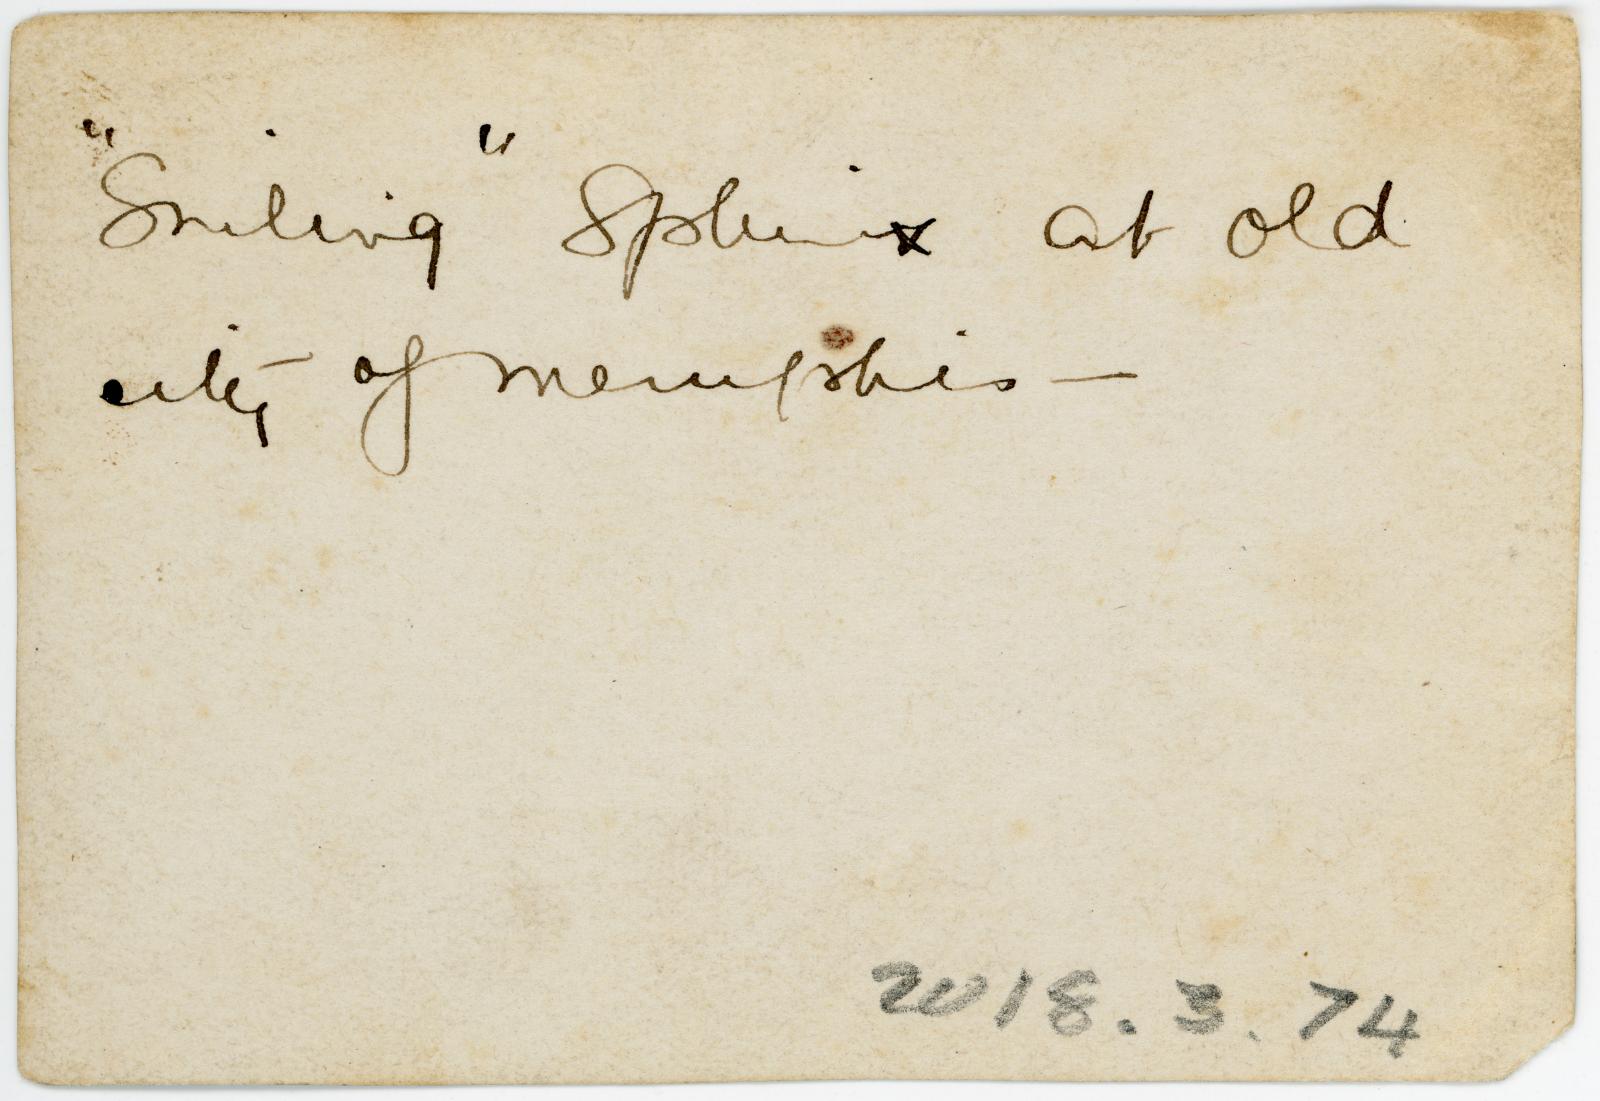 "Smiling" Sphinx at old
city of Memphis—
2018.3.74